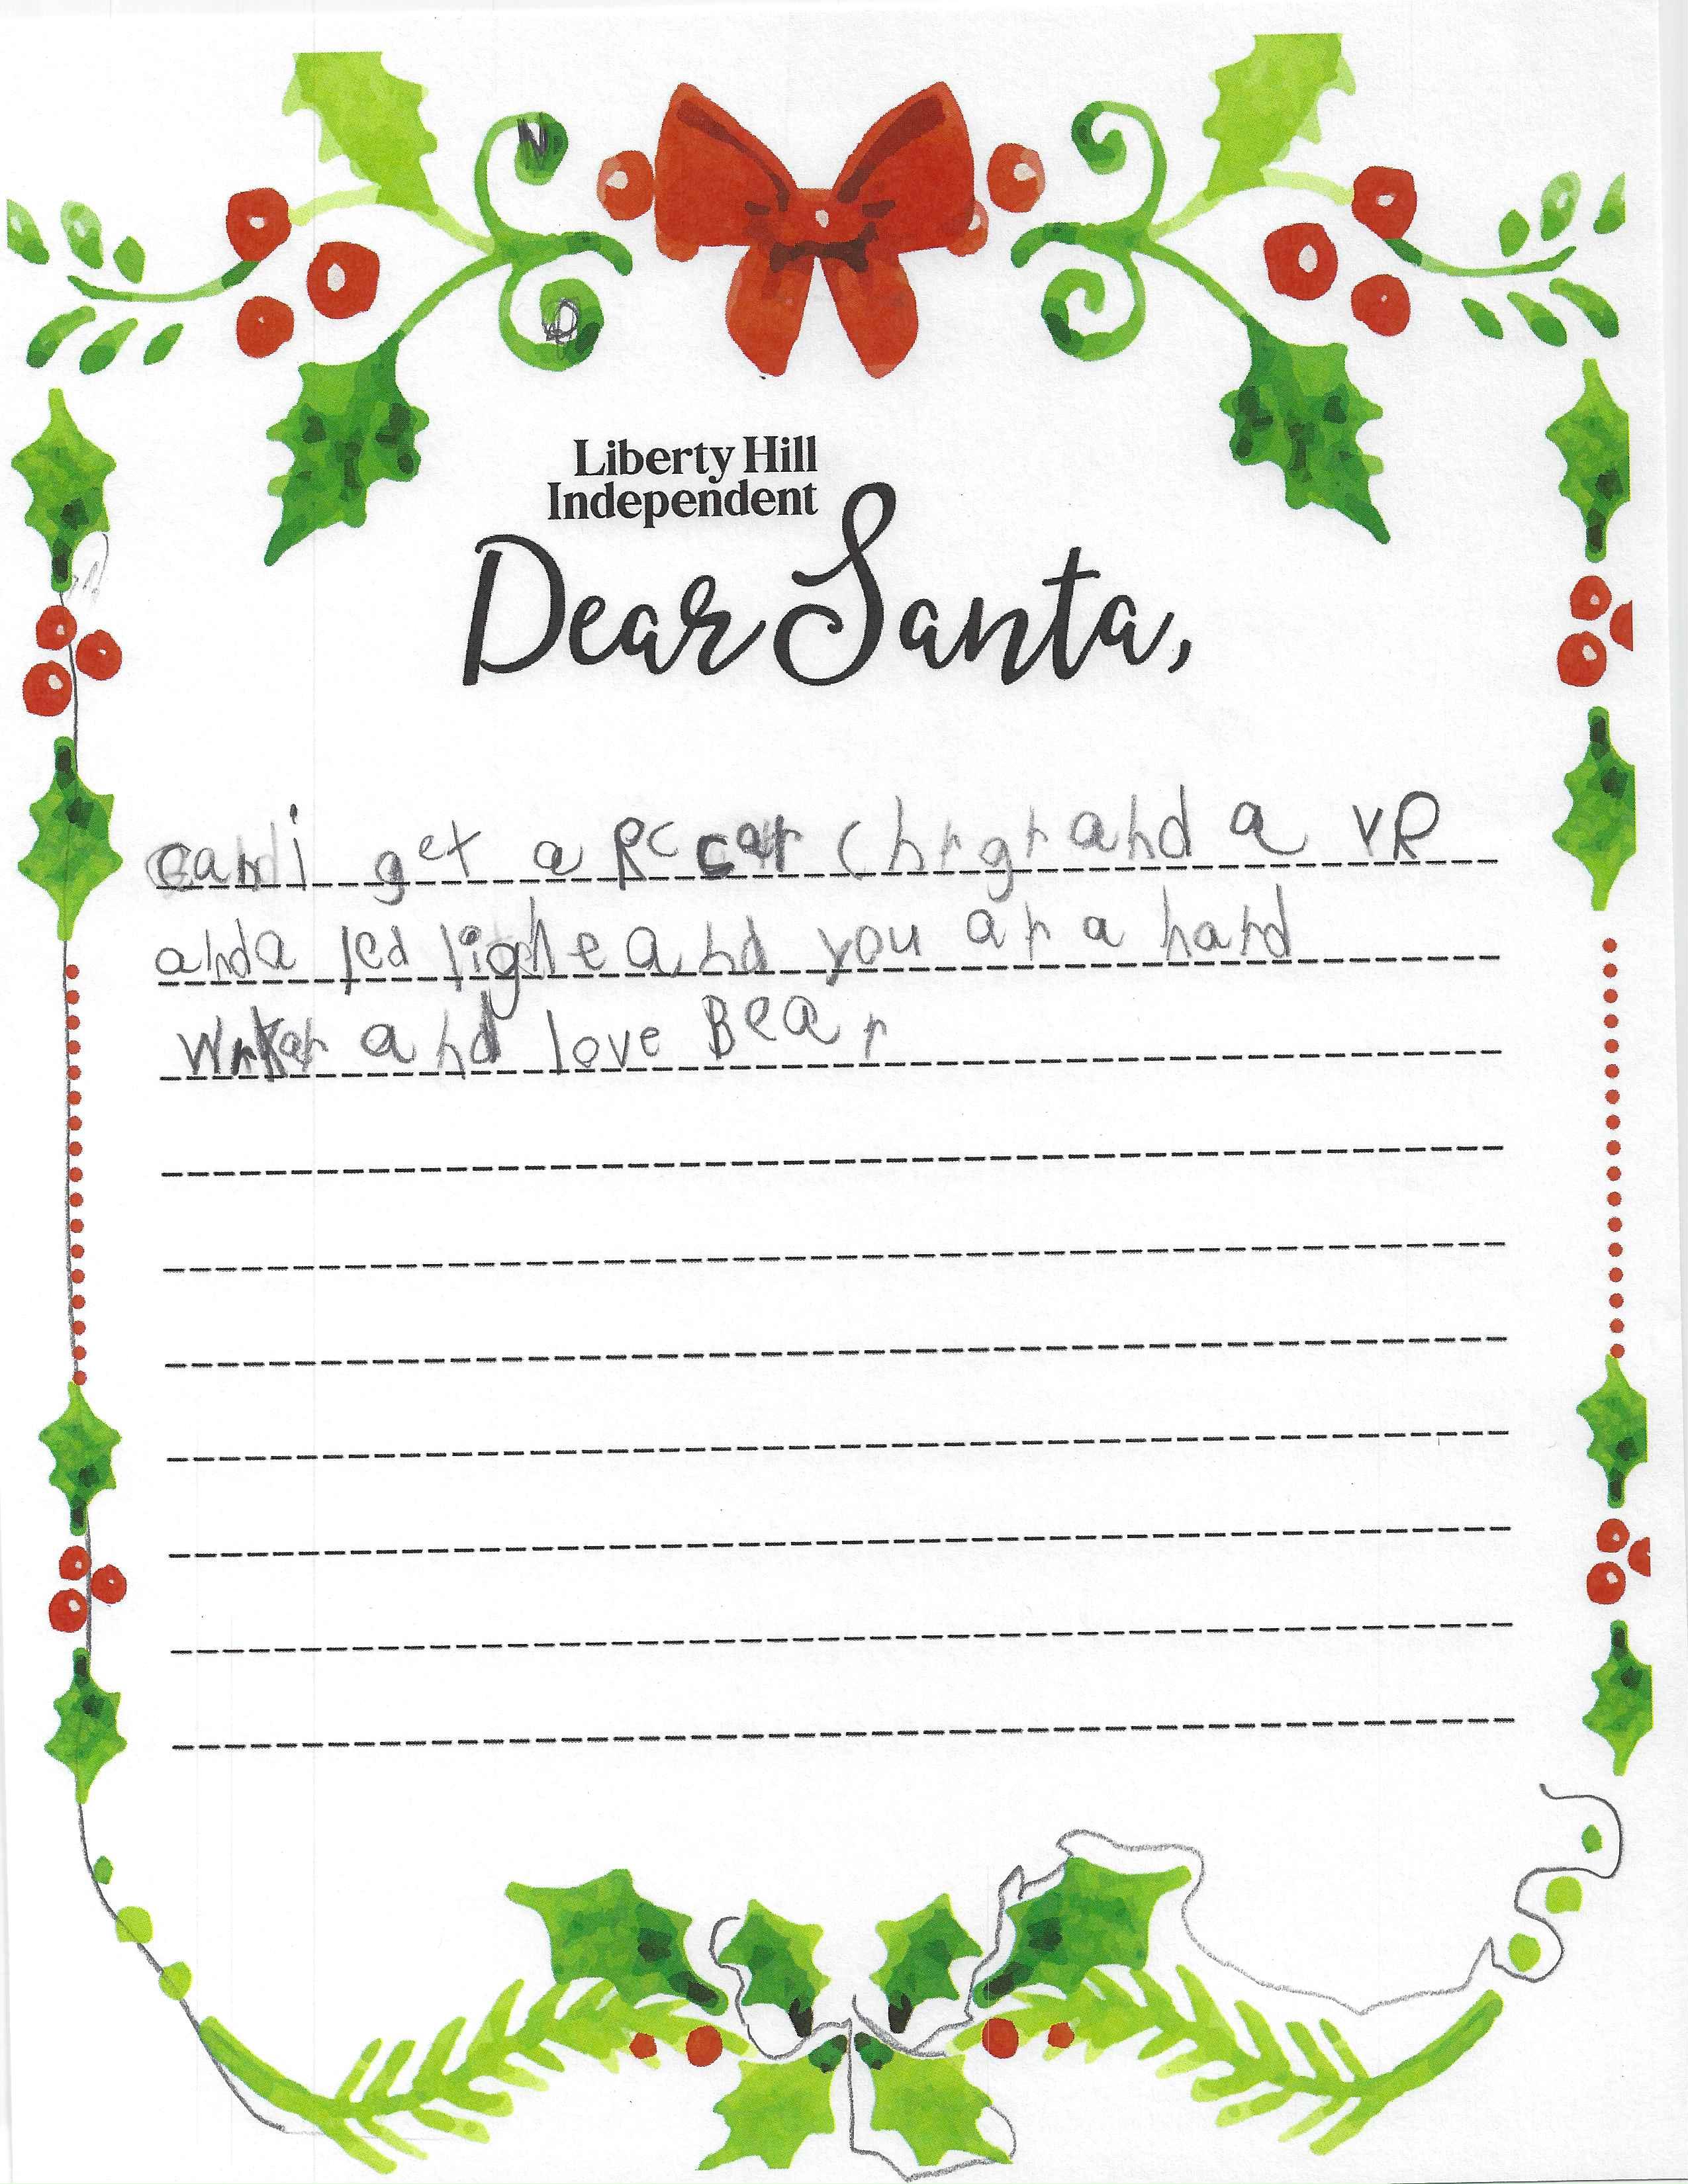 N
P
Liberty Hill
Independent
Dear Santa,
can i get a RC car chrgr and a VR
and a led lighe and you ar a hard
wrkar and love Bear